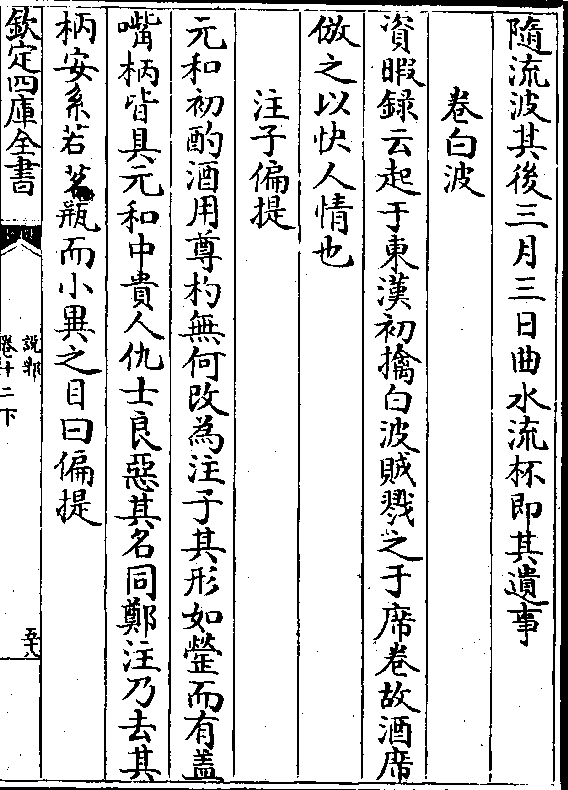 隨流波其後三月三日曲水流杯即其遺事
卷白波
資暇録云起于東漢初擒白波賊戮之于席卷故酒席
倣之以快人情也
注子偏提
元和初酌酒用尊杓無何改為注子其形如罃而有盖
嘴柄皆具元和中貴人仇士良惡其名同鄭注乃去其
柄安系若茗瓶而小異之目曰偏提
欽定四庫全書
說郛
卷十二下